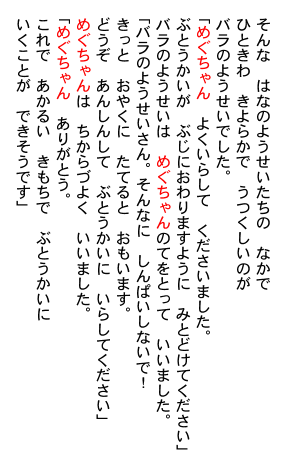 そんな　はなのようせいたちの　なかで
ひときわ　きよらかで　うつくしいのが
バラのようせいでした。
「めぐちゃん　よくいらして　くださいました。
ぶとうかいが　ぶじにおわりますように　みとどけてください」
バラのようせいは　めぐちゃんのてをとって　いいました。
「バラのようせいさん。そんなに　しんぱいしないで！
きっと　おやくに　たてると　おもいます。
どうぞ　あんしんして　ぶとうかいに　いらしてください」
めぐちゃんは　ちからづよく　いいました。
「めぐちゃん　ありがとう。
これで　あかるい　きもちで　ぶとうかいに
いくことが　できそうです」